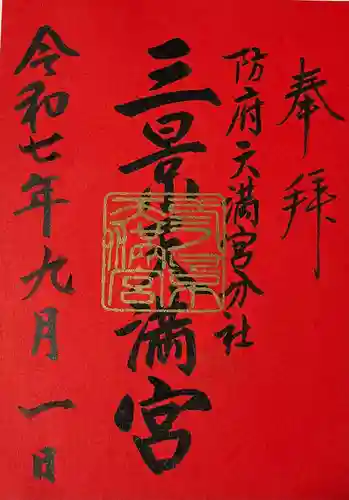 奉拝
防府天満宮分社
三景天満宮
令和七年九月一日